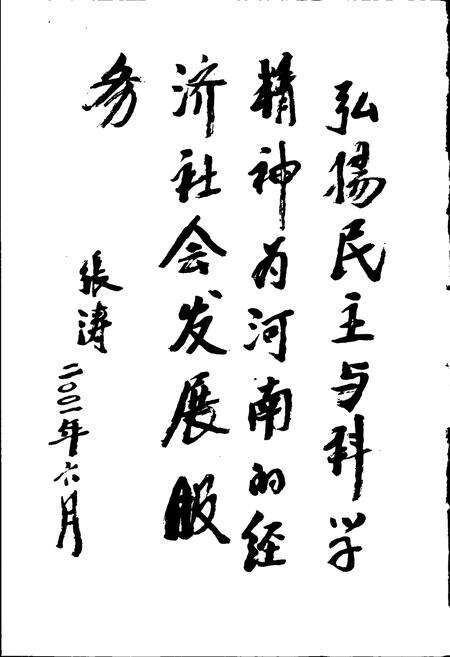 弘扬民主与科学
精神为河南的经
济社会发展服
务
張涛
二〇〇一年六月